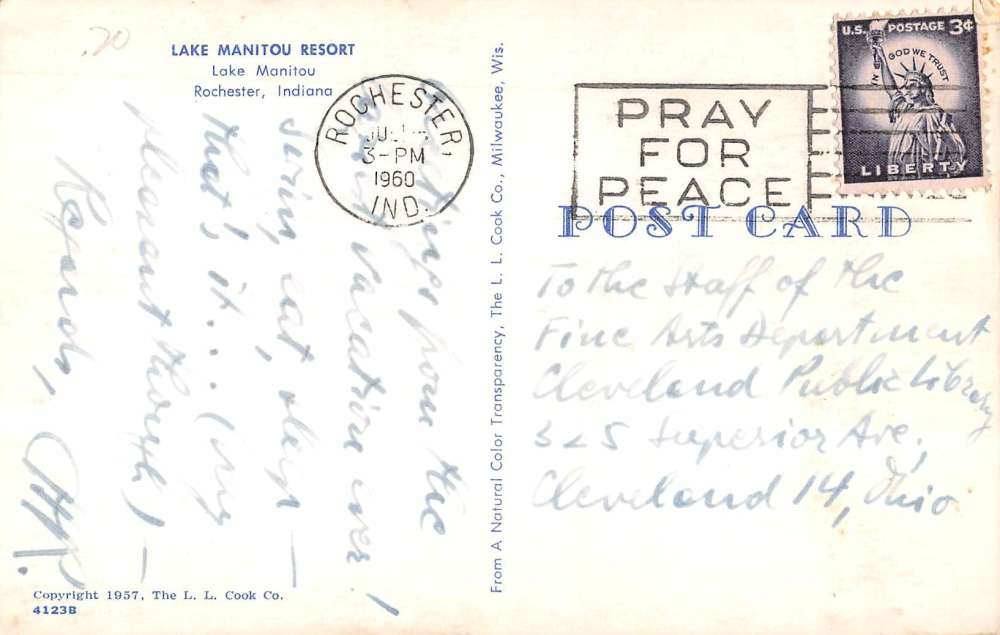 .20
LAKE MANITOU RESORT
Lake Manitou
Rochester, Indiana
Greetings from the
vacationers!
Swim, eat, sleep —
that's it... (very
pleasant though) —
Regards,
From A Natural Color Transparency, The L. L. Cook Co., Milwaukee, Wis.
ROCHESTER,
3-PM
1960
IND.
PRAY
FOR
PEACE
U.S. POSTAGE 3¢
IN GOD WE TRUST
LIBERTY
POST CARD
To the Staff of the
Fine Arts Department
Cleveland Public Library
325 Superior Ave,
Cleveland 14, Ohio
Copyright 1957, The L. L. Cook Co.
4123B